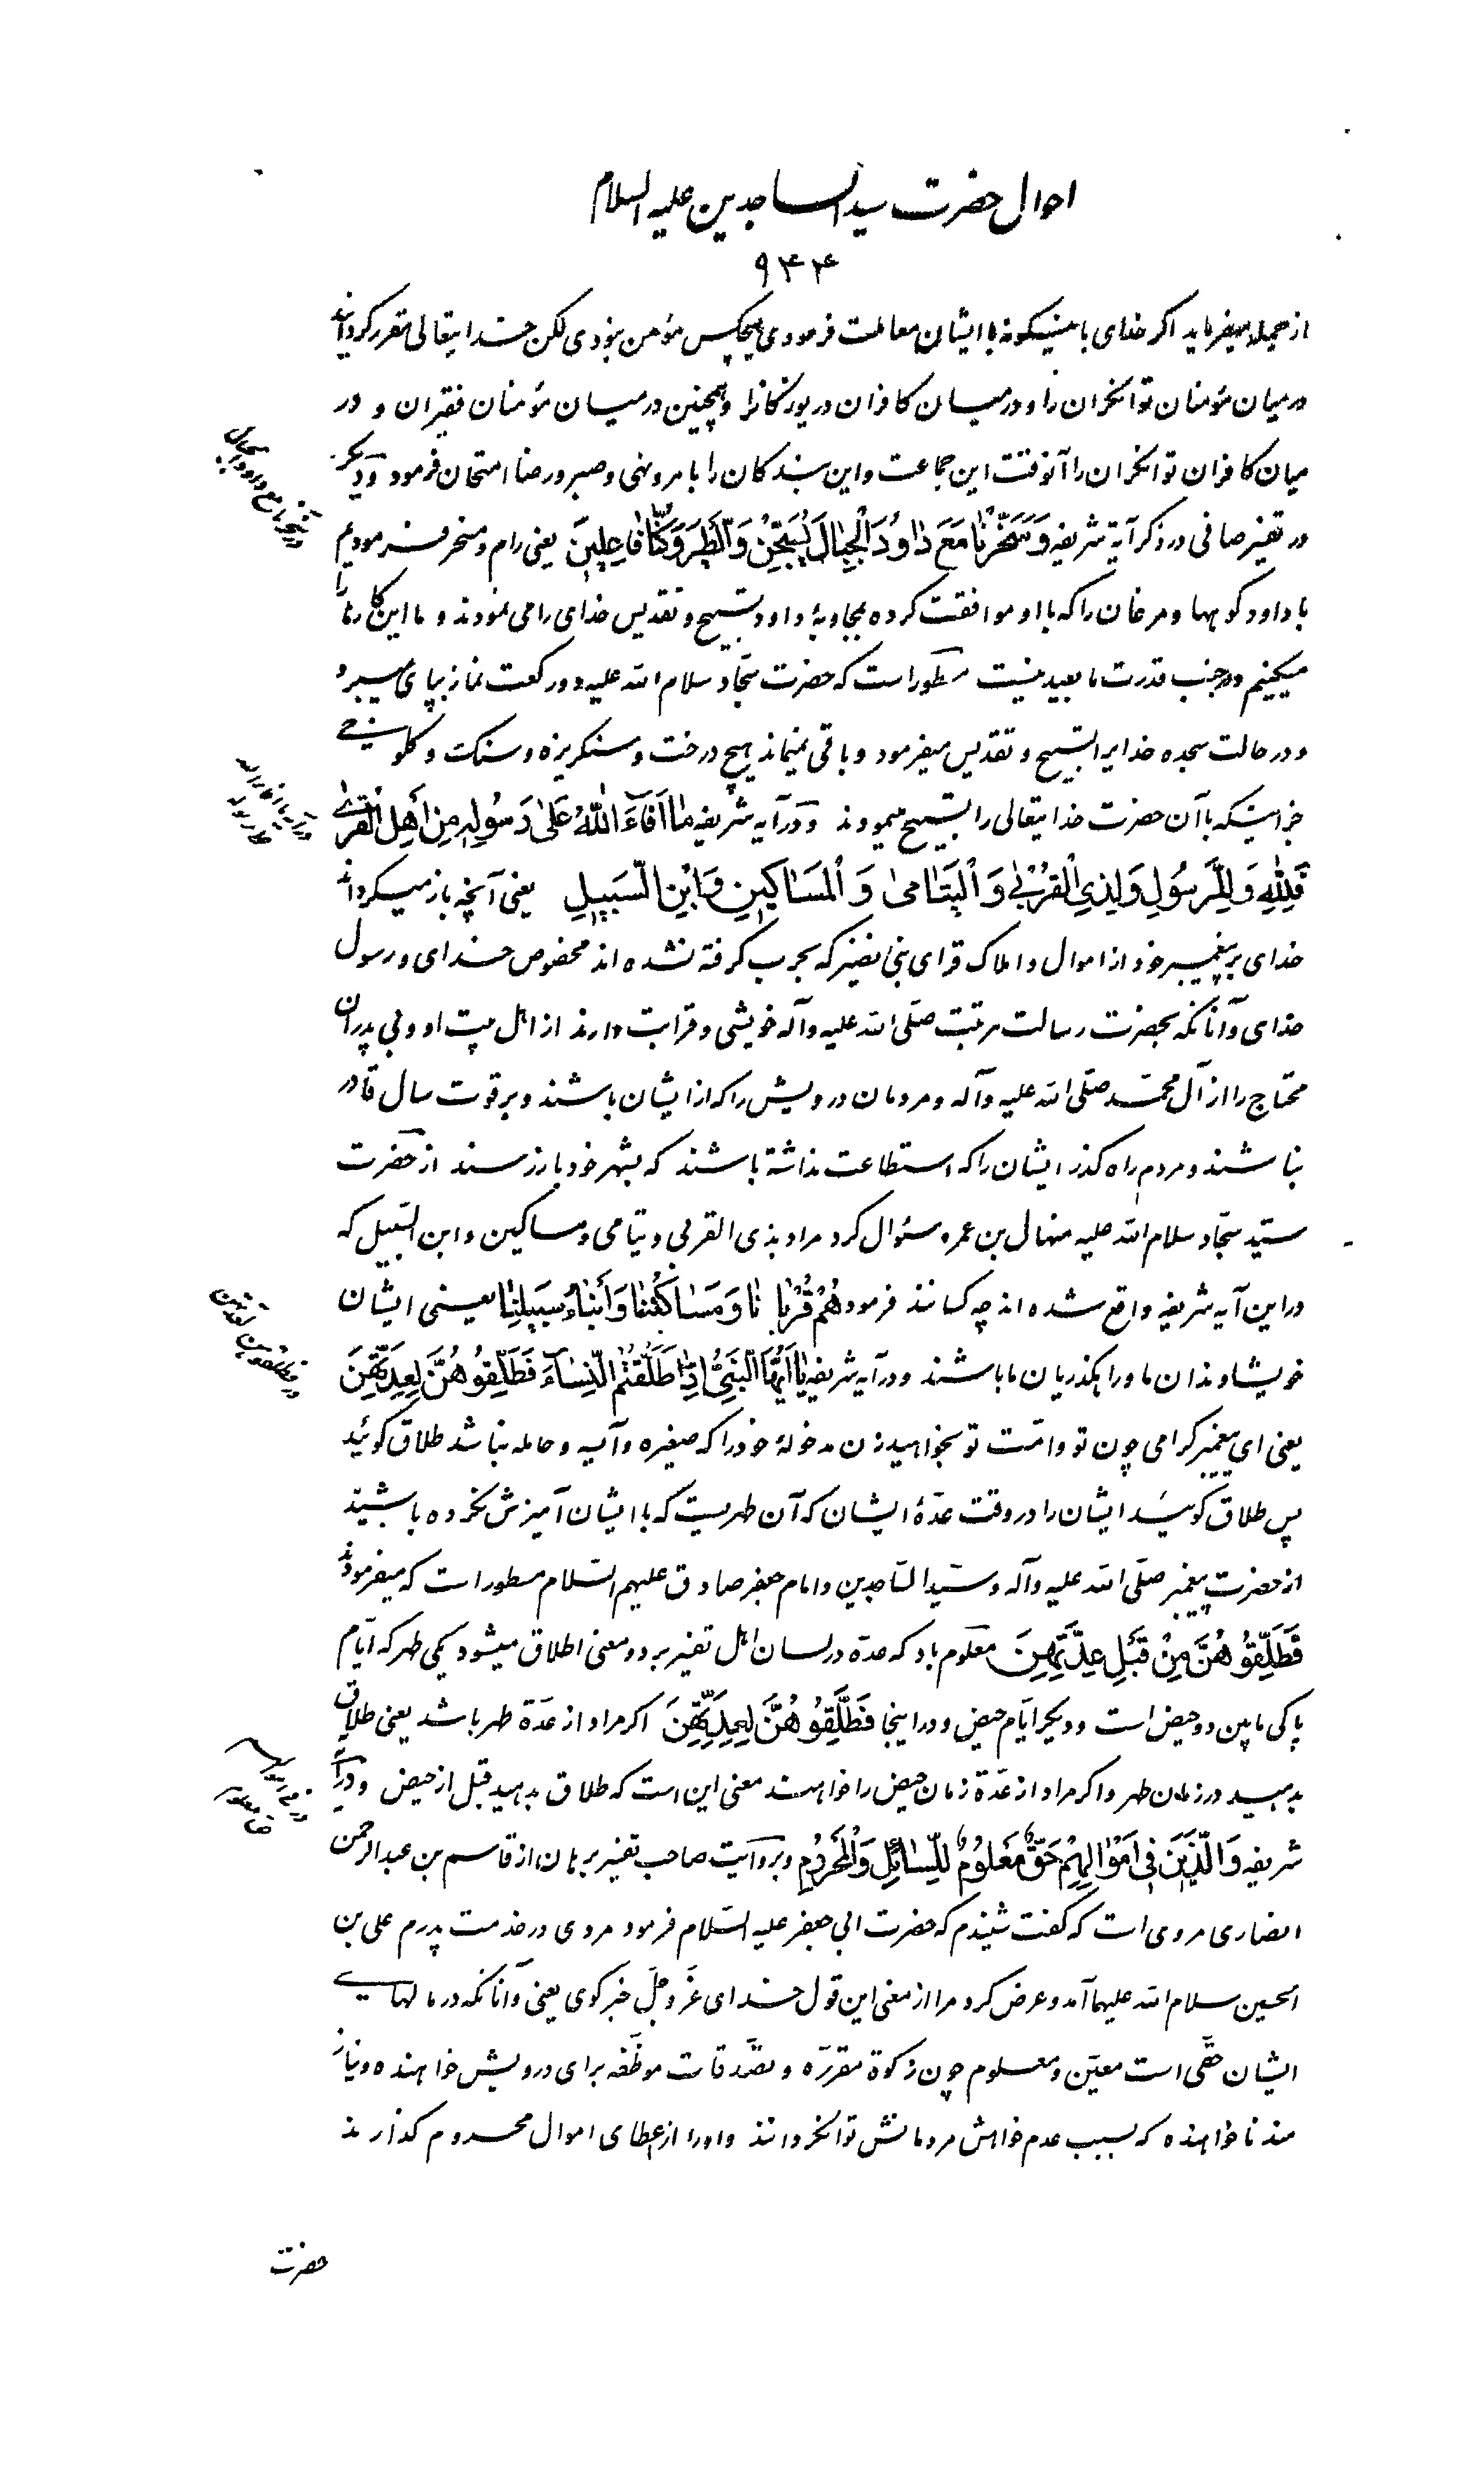 احوال حضرت سید الساجدین علیه السلام
۹۴۴
از جمله میفرماید اکر خدای باینکونه با ایشان معاملت فرمودی هیچکس مؤمن نبودی لکن خدایتعالی مقرر کردانید
در میان مؤمنان توانکران را و در میان کافران دریوزکانرا و همچنین در میان مؤمنان فقیران و در
میان کافران توانکران را آنوقت این جماعت و این بندکان را بامر و نهی و صبر و رضا امتحان فرمود و دیکر
در تفسیر صافی در ذکر آیۀ شریفه وَسَخَّرْنَا مَعَ دَاوُدَ الْجِبَالَ یُسَبِّحْنَ وَالطَّیْرَ وَکُنَّا فَاعِلِینَ یعنی رام و مسخر فرمودیم
با داود کوهها و مرغان را که با او موافقت کرده بمجاوبۀ داود تسبیح و تقدیس خدای را می نمودند و ما این کارها را
میکنیم و در جنب قدرت ما بعید نیست مسطور است که حضرت سجّاد سلام الله علیه دو رکعت نماز بپای میبرد
و در حالت سجده خدایرا تسبیح و تقدیس میفرمود و باقی نمیماند هیچ درخت و سنکریزه و سنک و کلوخی
جز اینکه با آن حضرت خدایتعالی را تسبیح مینمودند و در آیه شریفه مَا أَفَاءَ اللهُ عَلَى رَسُولِهِ مِنْ أَهْلِ الْقُرَى
فَلِلَّهِ وَلِلرَّسُولِ وَلِذِی الْقُرْبَى وَالْیَتَامَى وَالْمَسَاکِینِ وَابْنِ السَّبِیلِ یعنی آنچه باز میکرداند
خدای بر پیغمبر خود از اموال و املاک قرای بنی نضیر که بحرب کرفته نشده اند مخصوص خدای و رسول
خدای و آنانکه بحضرت رسالت مرتبت صلّی الله علیه و آله خویشی و قرابت دارند از اهل بیت او و بی پدران
محتاج را از آل محمّد صلّی الله علیه و آله و مردمان درویش را که از ایشان باشند و بر قوت سال قادر
نباشند و مردم راه کذر ایشان را که استطاعت نداشته باشند که بشهر خود باز رسند از حضرت
سیّد سجّاد سلام الله علیه منهال بن عمرو سئوال کرد مراد بذی القربی و یتامی و مساکین و ابن السّبیل که
در این آیه شریفه واقع شده اند چه کسانند فرمود هُمْ قُرْبَانَا وَمَسَاکِینُنَا وَأَبْنَاءُ سَبِیلِنَا یعنی ایشان
خویشاوندان ما و راهکذریان ما باشند و در آیه شریفه یَا أَیُّهَا النَّبِیُّ إِذَا طَلَّقْتُمُ النِّسَاءَ فَطَلِّقُوهُنَّ لِعِدَّتِهِنَّ
یعنی ای پیغمبر کرامی چون تو و امّت تو بخواهید زن مدخولۀ خود را که صغیره و آیسه و حامله نباشد طلاق کوئید
پس طلاق کوئید ایشان را در وقت عدّۀ ایشان که آن طهریست که با ایشان آمیزش نکرده باشید
از حضرت پیغمبر صلّی الله علیه و آله و سیّد السّاجدین و امام جعفر صادق علیهم السّلام مسطور است که میفرمودند
فَطَلِّقُوهُنَّ مِنْ قَبْلِ عِدَّتِهِنَّ معلوم باد که عدّه در لسان اهل تفسیر بر دو معنی اطلاق میشود یکی طهر که ایّام
پاکی مابین دو حیض است و دیکر ایّام حیض و در اینجا فَطَلِّقُوهُنَّ لِعِدَّتِهِنَّ اکر مراد از عدّة طهر باشد یعنی طلاق
بدهید در زمان طهر و اکر مراد از عدّة زمان حیض را خواهند معنی این است که طلاق بدهید قبل از حیض و در آیۀ
شریفه وَالَّذِینَ فِی أَمْوَالِهِمْ حَقٌّ مَعْلُومٌ لِلسَّائِلِ وَالْمَحْرُومِ و بروایت صاحب تفسیر برهان از قاسم بن عبدالرحمن
انصاری مروی است که کفت شنیدم که حضرت ابی جعفر علیه السّلام فرمود مردی در خدمت پدرم علی بن
الحسین سلام الله علیهما آمد و عرض کرد مرا از معنی این قول خدای عَزَّ وَجَلَّ خبر کوی یعنی و آنانکه در مالهای
ایشان حقّی است معیّن و معلوم چون زکوة مقرّره و تصدّقات موظّفه برای درویش خواهنده و نیاز
مند ناخواهنده که بسبب عدم خواهش مردمانش توانکر دانند و او را از عطای اموال محروم کذارند
حضرت